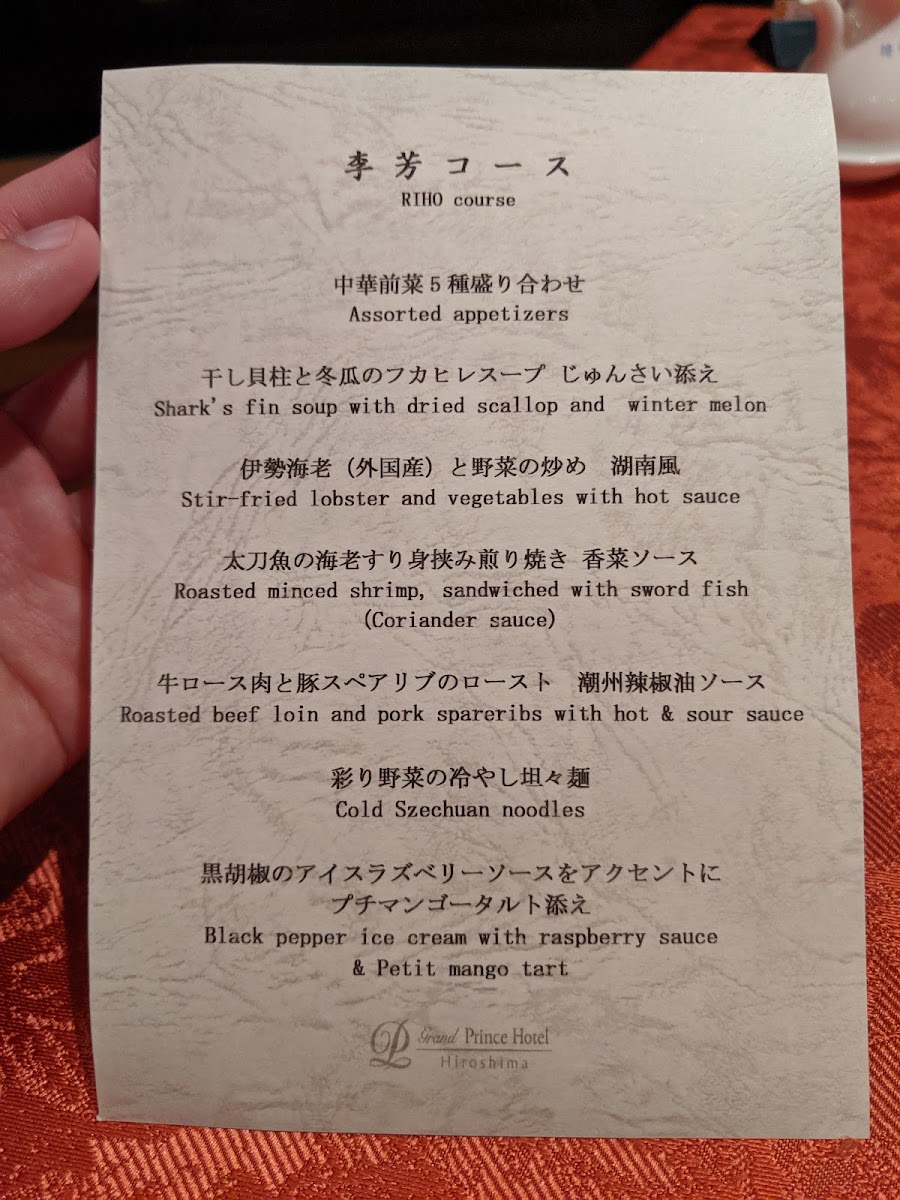 李芳コース
RIHO course
中華前菜5種盛り合わせ
Assorted appetizers
干し貝柱と冬瓜のフカヒレスープ じゅんさい添え
Shark's fin soup with dried scallop and winter melon
伊勢海老（外国産）と野菜の炒め　湖南風
Stir-fried lobster and vegetables with hot sauce
太刀魚の海老すり身挟み煎り焼き 香菜ソース
Roasted minced shrimp, sandwiched with sword fish
(Coriander sauce)
牛ロース肉と豚スペアリブのロースト　潮州辣椒油ソース
Roasted beef loin and pork spareribs with hot & sour sauce
彩り野菜の冷やし坦々麺
Cold Szechuan noodles
黒胡椒のアイスラズベリーソースをアクセントに
プチマンゴータルト添え
Black pepper ice cream with raspberry sauce
& Petit mango tart
Grand Prince Hotel
Hiroshima